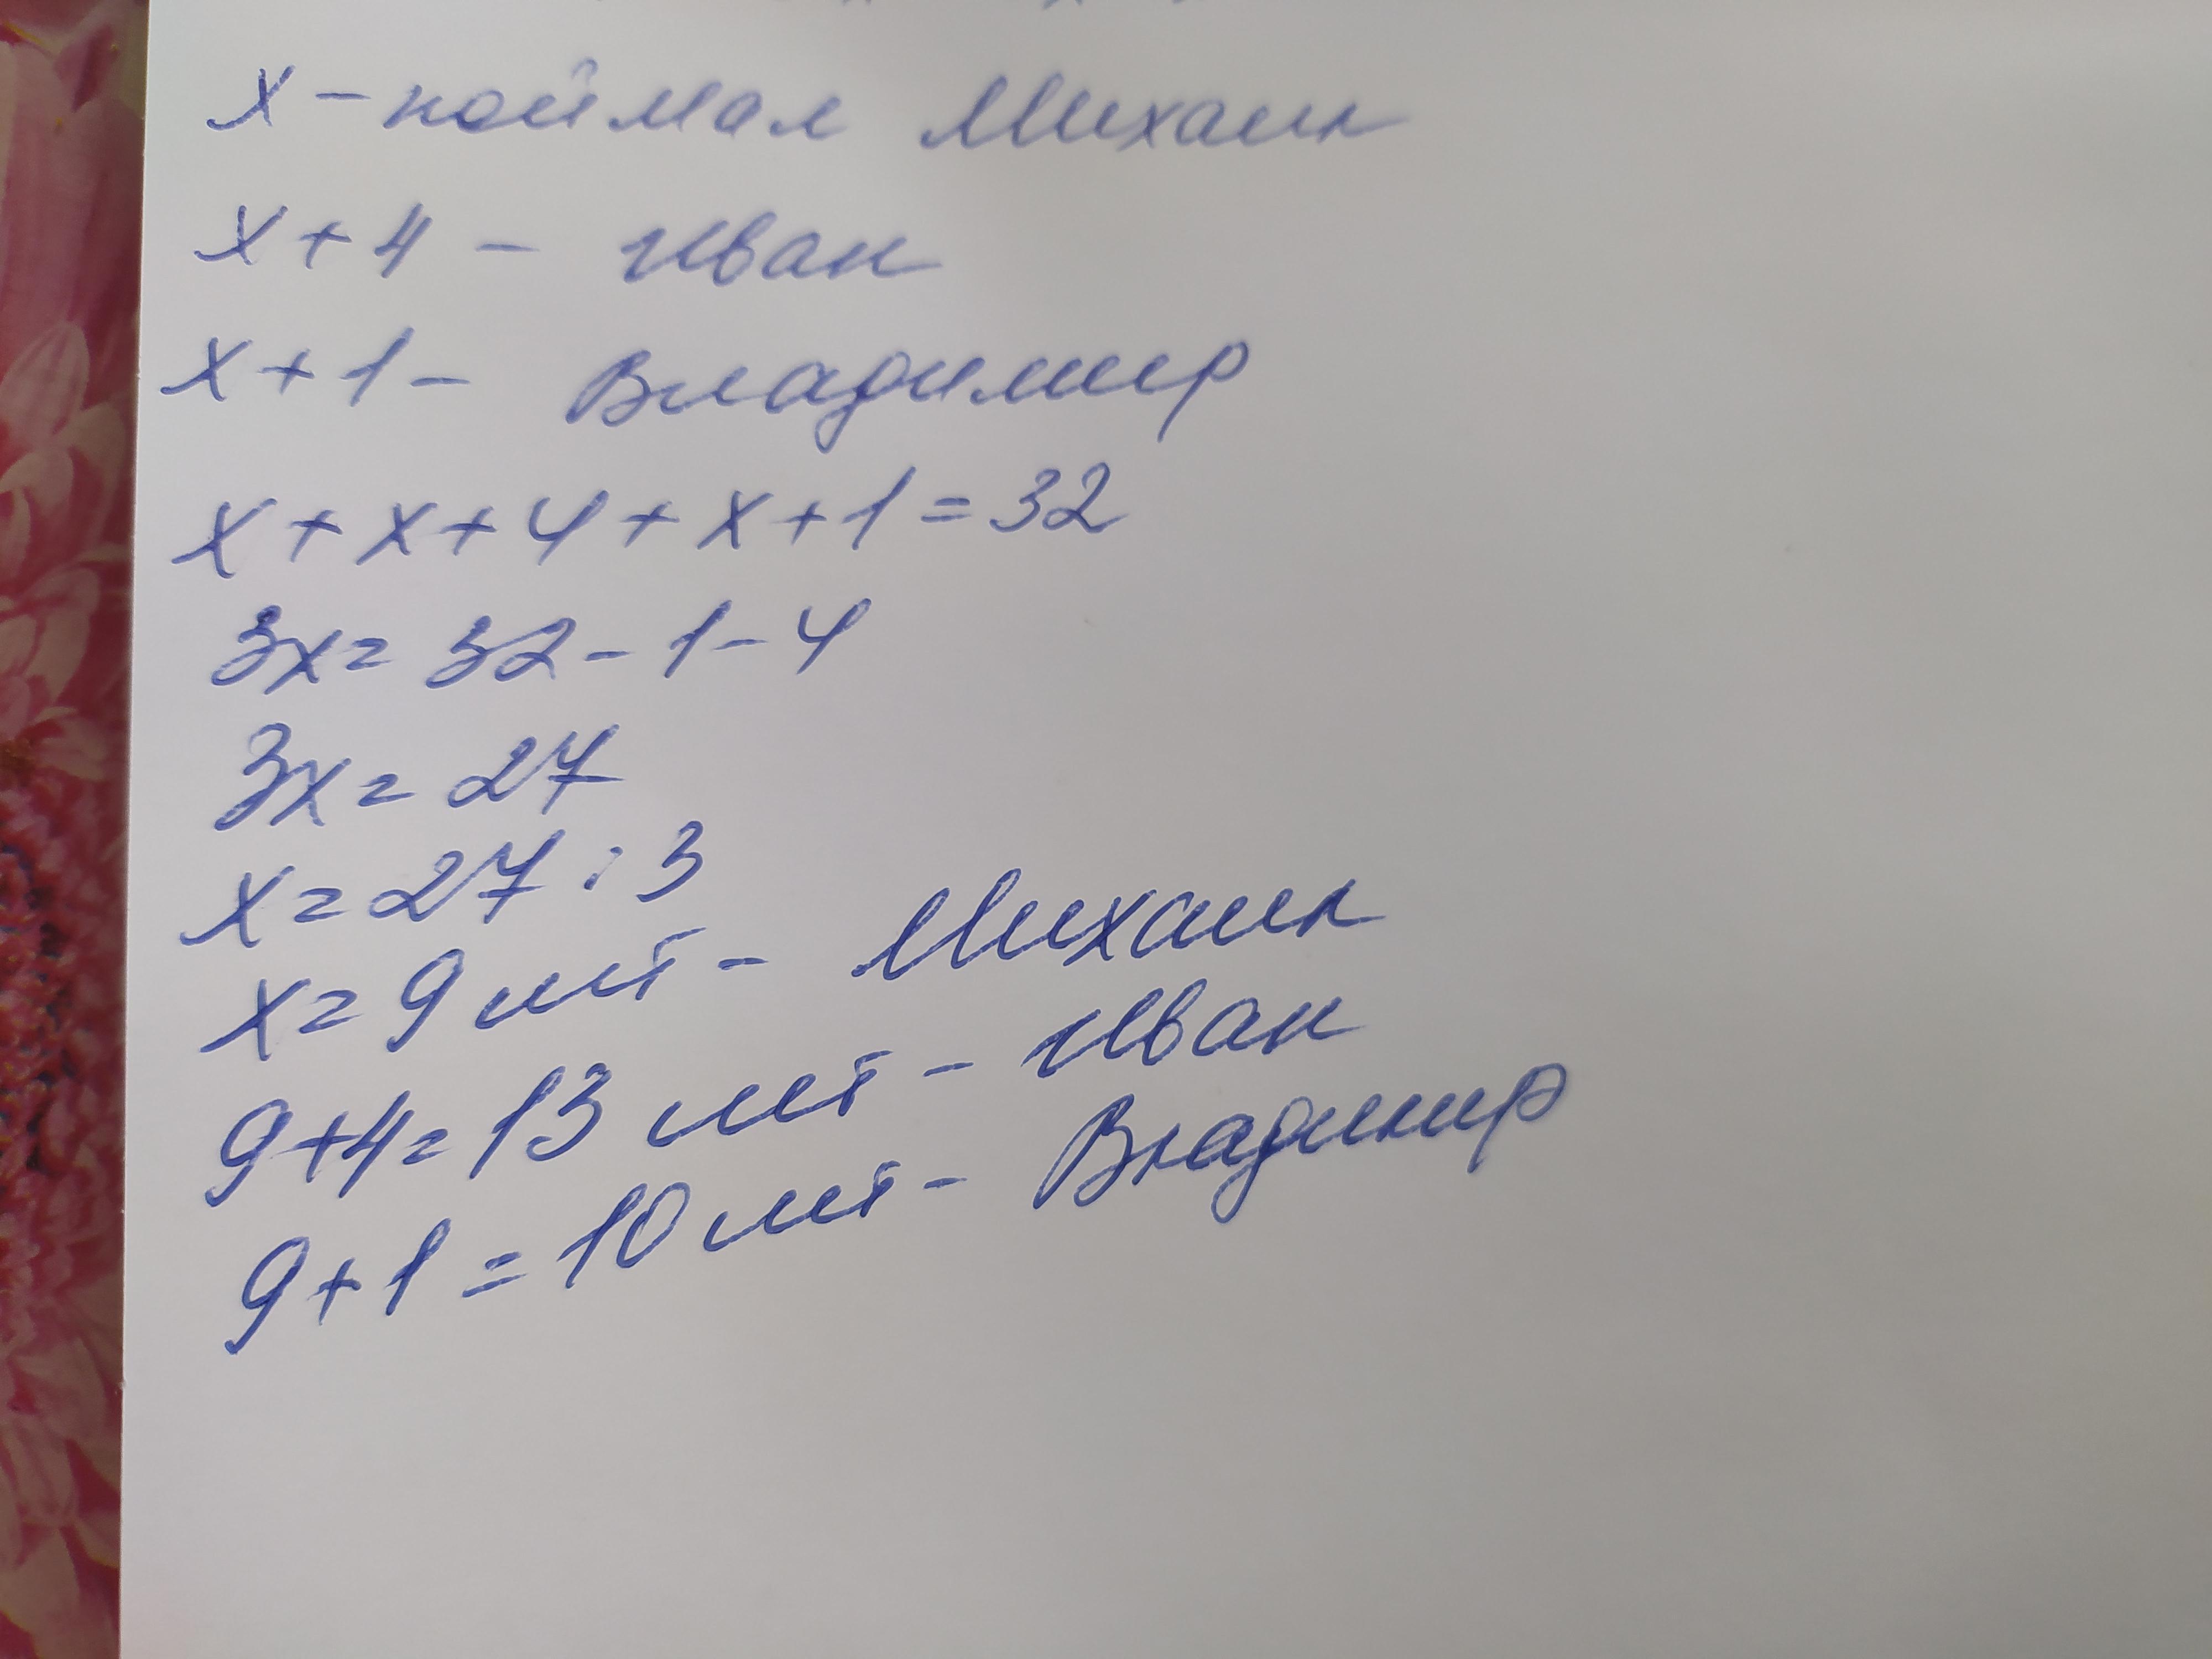 x - поймал Михаил
x + 4 - Иван
x + 1 - Владимир
x + x + 4 + x + 1 = 32
3x = 32 - 1 - 4
3x = 27
x = 27 : 3
x = 9 шт - Михаил
9 + 4 = 13 шт - Иван
9 + 1 = 10 шт - Владимир